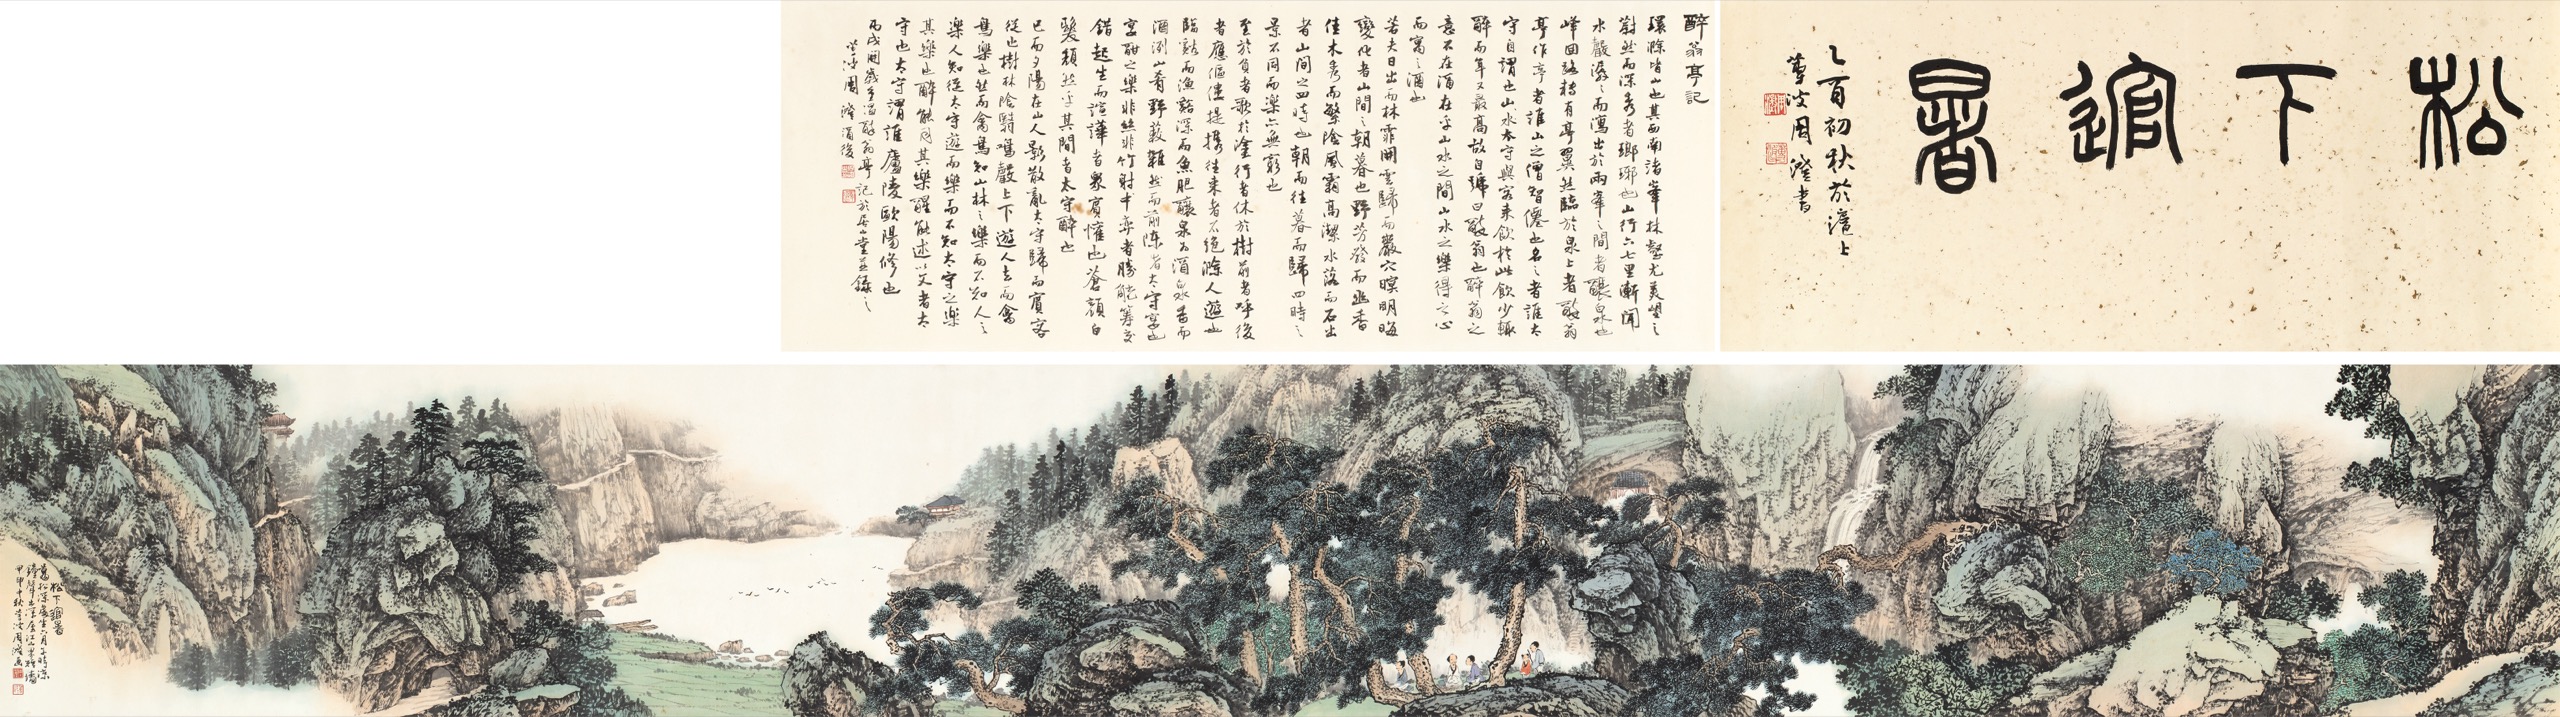 松下逭暑
乙酉初秋於滬上
蓴波周澄書
醉翁亭記
環滁皆山也其西南諸峯林壑尤美望之
蔚然而深秀者瑯琊也山行六七里漸聞
水聲潺潺而瀉出於兩峯之間者釀泉也
峰回路轉有亭翼然臨於泉上者醉翁
亭作亭者誰山之僧智僊也名之者誰太
守自謂也山水太守與客来飲於此飲少輒
醉而年又最高故自號曰醉翁也醉翁之
意不在酒在乎山水之間山水之樂得之心
而寓之酒也
若夫日出而林霏開雲歸而巖穴暝明晦
變化者山間之朝暮也野芳發而幽香
佳木秀而繁陰風霜高潔水落而石出
者山間之四時也朝而往暮而歸四時之
景不同而樂亦無窮也
至於負者歌於塗行者休於樹前者呼後
者應傴僂提攜往来者不絕滁人遊也
臨谿而漁谿深而魚肥釀泉為酒泉香而
酒洌山肴野蔌雜然而前陳者太守宴也
宴酣之樂非絲非竹射中弈者勝觥籌交
錯起坐而諠譁者眾賓懽也蒼顏白
髮頹然乎其間者太守醉也
已而夕陽在山人影散亂太守歸而賓客
從也樹林陰翳鳴聲上下遊人去而禽
鳥樂也然而禽鳥知山林之樂而不知人之
樂人知從太守遊而樂而不知太守之樂
其樂也醉能同其樂醒能述以文者太
守也太守謂誰廬陵歐陽修也
丙戌開歲重溫醉翁亭記於居山堂並錄之
蓴波周澄酒後
松下逭暑
萬松深處坐六月午時涼
鐘聲出深屋江光
甲申中秋蓴波周澄畫